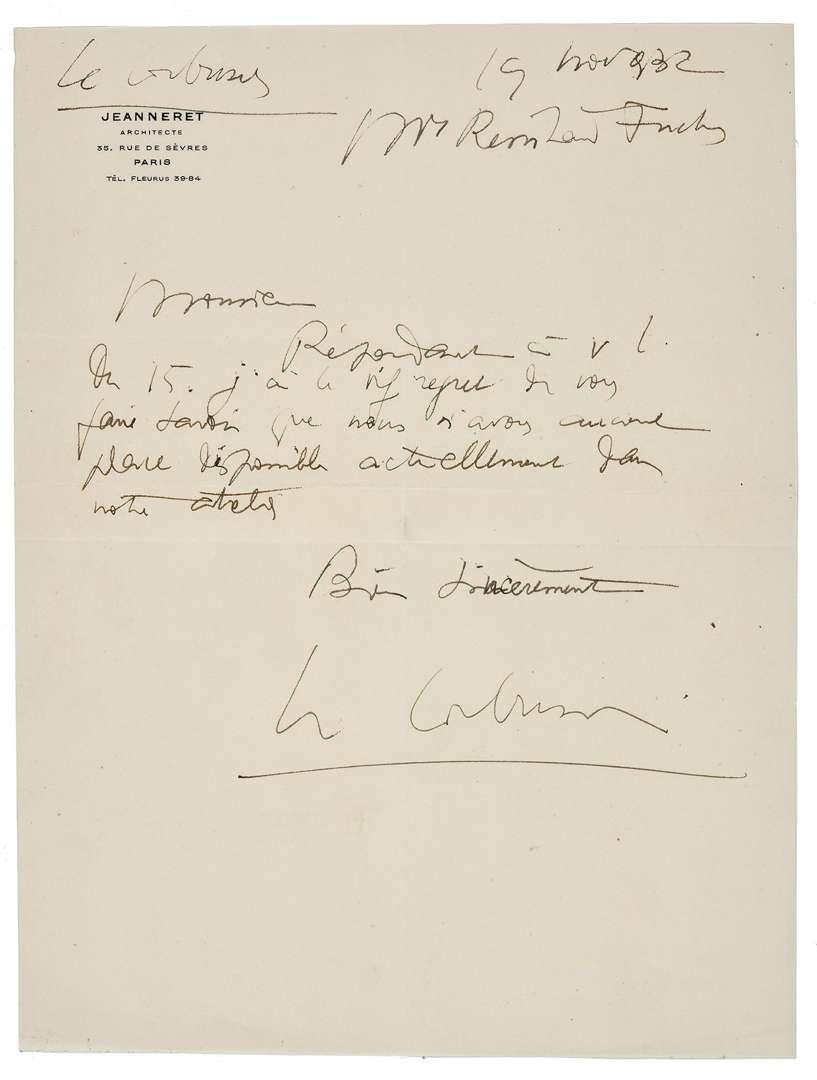 Le Corbusier
JEANNERET
ARCHITECTE
35, RUE DE SÈVRES
PARIS
TÉL. FLEURUS 39-84
19 nov 932
Mr Fuchs
Monsieur
Répondant à v l.
du 15. j'ai le vif regret de vous
faire savoir que nous n'avons aucune
place disponible actuellement dans
notre atelier
Bien sincèrement
Le Corbusier